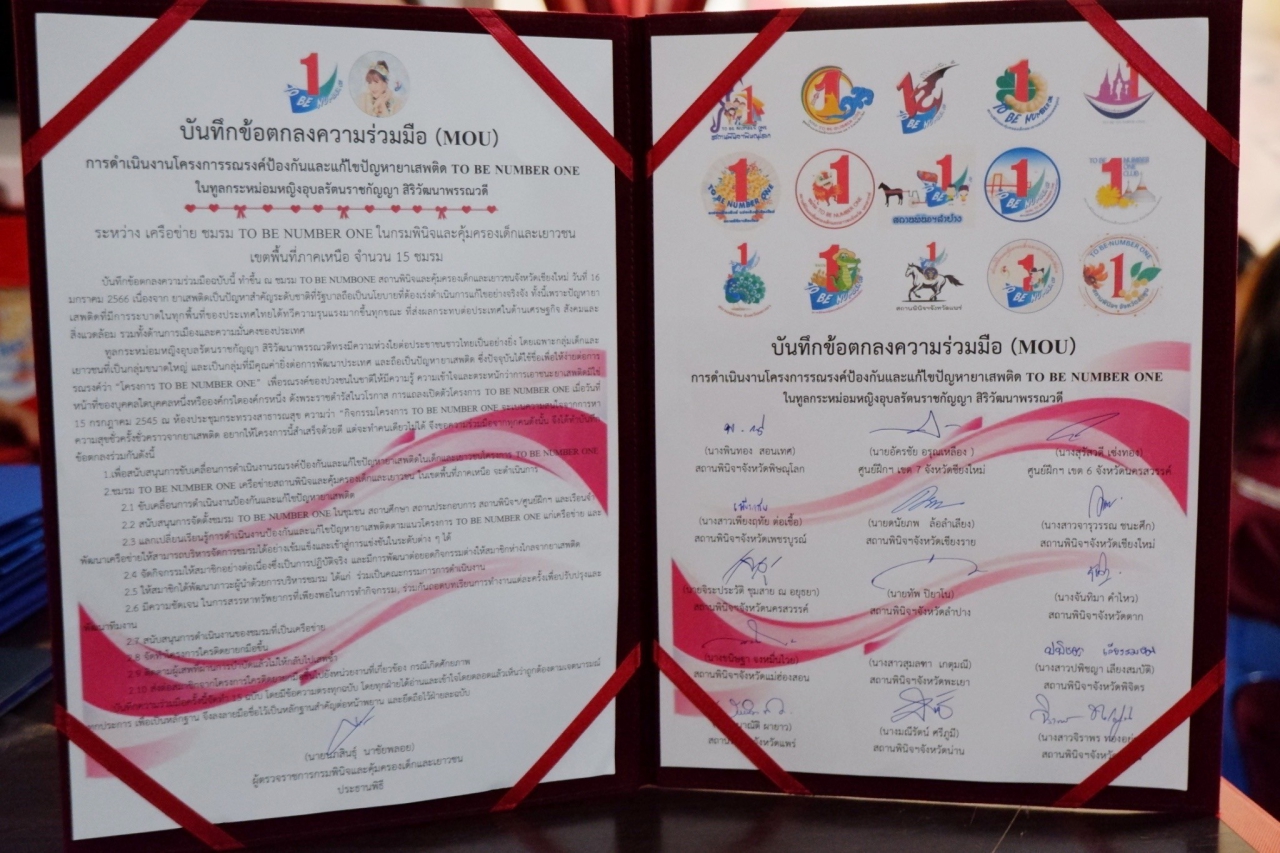 บันทึกข้อตกลงความร่วมมือ (MOU)
การดำเนินงานโครงการรณรงค์ป้องกันและแก้ไขปัญหายาเสพติด TO BE NUMBER ONE
ในทูลกระหม่อมหญิงอุบลรัตนราชกัญญา สิริวัฒนาพรรณวดี
ระหว่าง เครือข่าย ชมรม TO BE NUMBER ONE ในกรมพินิจและคุ้มครองเด็กและเยาวชน
เขตพื้นที่ภาคเหนือ จำนวน 15 ชมรม
บันทึกข้อตกลงความร่วมมือฉบับนี้ ทำขึ้น ณ ชมรม TO BE NUMBONE สถานพินิจและคุ้มครองเด็กและเยาวชนจังหวัดเชียงใหม่ วันที่ 16
มกราคม 2566 เนื่องจาก ยาเสพติดเป็นปัญหาสำคัญระดับชาติที่รัฐบาลถือเป็นนโยบายที่ต้องเร่งดำเนินการแก้ไขอย่างจริงจัง ทั้งนี้เพราะปัญหายา
เสพติดที่มีการระบาดในทุกพื้นที่ของประเทศไทยได้ทวีความรุนแรงมากขึ้นทุกขณะ ที่ส่งผลกระทบต่อประเทศในด้านเศรษฐกิจ สังคมและ
สิ่งแวดล้อม รวมทั้งด้านการเมืองและความมั่นคงของประเทศ
ทูลกระหม่อมหญิงอุบลรัตนราชกัญญา สิริวัฒนาพรรณวดีทรงมีความห่วงใยต่อประชาชนชาวไทยเป็นอย่างยิ่ง โดยเฉพาะกลุ่มเด็กและ
เยาวชนที่เป็นกลุ่มขนาดใหญ่ และเป็นกลุ่มที่มีคุณค่ายิ่งต่อการพัฒนาประเทศ และถือเป็นปัญหายาเสพติด ซึ่งปัจจุบันได้ใช้ชื่อเพื่อให้ง่ายต่อการ
รณรงค์ว่า "โครงการ TO BE NUMBER ONE" เพื่อรณรงค์ของปวงชนในชาติให้มีความรู้ ความเข้าใจและตระหนักว่าการเอาชนะยาเสพติดมิใช่
หน้าที่ของบุคคลใดบุคคลหนึ่งหรือองค์กรใดองค์กรหนึ่ง ดังพระราชดำรัสในวโรกาส การแถลงเปิดตัวโครงการ TO BE NUMBER ONE เมื่อวันที่
15 กรกฎาคม 2545 ณ ห้องประชุมกระทรวงสาธารณสุข ความว่า "กิจกรรมโครงการ TO BE NUMBER ONE
ความสุขชั่วครั้งชั่วคราวจากยาเสพติด อยากให้โครงการนี้สำเร็จด้วยดี แต่จะทำคนเดียวไม่ได้ จึงขอความร่วมมือจากทุกคนดังนั้น จึงได้ทำบันทึก
ข้อตกลงร่วมกันดังนี้
1.เพื่อสนับสนุนการขับเคลื่อนการดำเนินงานรณรงค์ป้องกันและแก้ไขปัญหายาเสพติดในเด็กและเยาวชนโครงการ TO BE NUMBER ONE
2.ชมรม TO BE NUMBER ONE เครือข่ายสถานพินิจและคุ้มครองเด็กและเยาวชน ในเขตพื้นที่ภาคเหนือ จะดำเนินการ
2.1 ขับเคลื่อนการดำเนินงานป้องกันและแก้ไขปัญหายาเสพติด
2.2 สนับสนุนการจัดตั้งชมรม TO BE NUMBER ONE ในชุมชน สถานศึกษา สถานประกอบการ สถานพินิจฯ/ศูนย์ฝึกฯ และเรือนจำ
2.3 แลกเปลี่ยนเรียนรู้การดำเนินงานป้องกันและแก้ไขปัญหายาเสพติดตามแนวโครงการ TO BE NUMBER ONE แก่เครือข่าย และ
พัฒนาเครือข่ายให้สามารถบริหารจัดการชมรมได้อย่างเข้มแข็งและเข้าสู่การแข่งขันในระดับต่าง ๆ ได้
2.4 จัดกิจกรรมให้สมาชิกอย่างต่อเนื่องซึ่งเป็นการปฏิบัติจริง และมีการพัฒนาต่อยอดกิจกรรมต่างให้สมาชิกห่างไกลจากยาเสพติด
2.5 ให้สมาชิกได้พัฒนาภาวะผู้นำด้วยการบริหารชมรม ได้แก่ ร่วมเป็นคณะกรรมการการดำเนินงาน
2.6 มีความชัดเจน ในการสรรหาทรัพยากรที่เพียงพอในการทำกิจกรรม, ร่วมกันถอดบทเรียนการทำงานแต่ละครั้งเพื่อปรับปรุงและ
พัฒนาทีมงาน
2.7 สนับสนุนการดำเนินงานของชมรมที่เป็นเครือข่าย
2.8 จัดทำโครงการใครติดยายกมือขึ้น
2.9 ติดตามผู้เสพที่ผ่านการบำบัดแล้วไม่ให้กลับไปเสพซ้ำ
2.10 ส่งต่อสมาชิกจากโครงการใครติดยายกมือขึ้น ไปยังหน่วยงานที่เกี่ยวข้อง กรณีเกิดศักยภาพ
บันทึกความร่วมมือครั้งนี้จัดทำ 15 ฉบับ โดยมีข้อความตรงทุกฉบับ โดยทุกฝ่ายได้อ่านและเข้าใจโดยตลอดแล้วเห็นว่าถูกต้องตามเจตนารมณ์
ทุกประการ เพื่อเป็นหลักฐาน จึงลงลายมือชื่อไว้เป็นหลักฐานสำคัญต่อหน้าพยาน และยึดถือไว้ฝ่ายละฉบับ
นาชัยพลอย)
ผู้ตรวจราชการกรมพินิจและคุ้มครองเด็กและเยาวชน
ประธานพิธี
TO BE NUMBER ONE
สถานพินิจฯลำปาง
บันทึกข้อตกลงความร่วมมือ (MOU)
การดำเนินงานโครงการรณรงค์ป้องกันและแก้ไขปัญหายาเสพติด TO BE NUMBER ONE
ในทูลกระหม่อมหญิงอุบลรัตนราชกัญญา สิริวัฒนาพรรณวดี
(นางพินทอง สอนเทศ) (นายอัครชัย อรุณเหลือง ) (นางสุรัสวดี เซ่งทอง)
สถานพินิจฯจังหวัดพิษณุโลก ศูนย์ฝึกฯ เขต 7 จังหวัดเชียงใหม่ ศูนย์ฝึกฯ เขต 6 จังหวัดนครสวรรค์
(นางสาวเพียงฤทัย ต่อเชื้อ) (นายดนัยภพ ล้อลำเลียง) (นางสาวจารุวรรณ ชนะศึก)
สถานพินิจฯจังหวัดเพชรบูรณ์ สถานพินิจฯจังหวัดเชียงราย สถานพินิจฯจังหวัดเชียงใหม่
(นายจิระประวัติ ชุมสาย ณ อยุธยา) (นายทัพ ปิยาโน) (นางจันทิมา คำไหว)
สถานพินิจฯจังหวัดนครสวรรค์ สถานพินิจฯจังหวัดลำปาง สถานพินิจฯจังหวัดตาก
(นางชนิษฐา จงหมื่นไวย) (นางสาวสุมลฑา เกตุมณี) (นางสาวปพิชญา เลียงสมบัติ)
สถานพินิจฯจังหวัดแม่ฮ่องสอน สถานพินิจฯจังหวัดพะเยา สถานพินิจฯจังหวัดพิจิตร
ผายาว) (นางมณีรัตน์ ศรีภูมี) (นางสาวจิราพร
จังหวัดแพร่ สถานพินิจฯจังหวัดน่าน สถานพินิจฯ